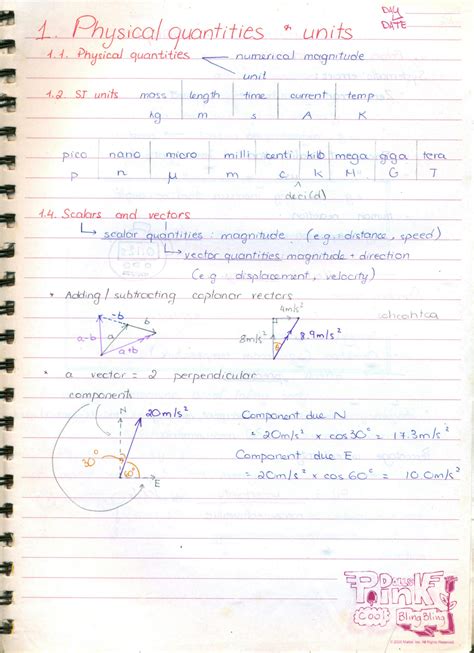 DAY
DATE
1. Physical quantities & units
1.1. Physical quantities numerical magnitude
unit
1.2. SI units mass length time current temp
kg m s A K
pico nano micro milli centi kilo mega giga tera
p n μ m c k M G T
deci(d)
1.4. Scalars and vectors
scalar quantities : magnitude (e.g. distance, speed)
vector quantities magnitude + direction
(e.g. displacement, velocity)
* Adding / subtracting coplanar vectors
-b
a-b
a
b
a+b
4m/s²
8m/s²
8.9m/s²
* a vector = 2 perpendicular
components
N
20m/s²
30°
60°
E
Component due N
= 20m/s² x cos30° = 17.3m/s²
Component due E
= 20m/s² x cos 60° = 10.0m/s²
Pink
Cool
Bling Bling